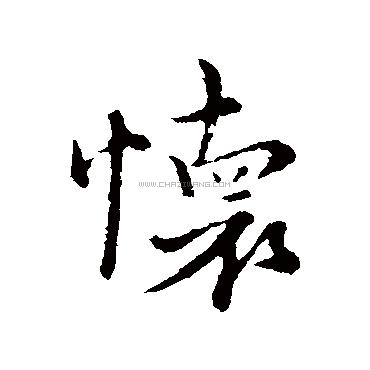 懷
WWW.CHAZIWANG.COM